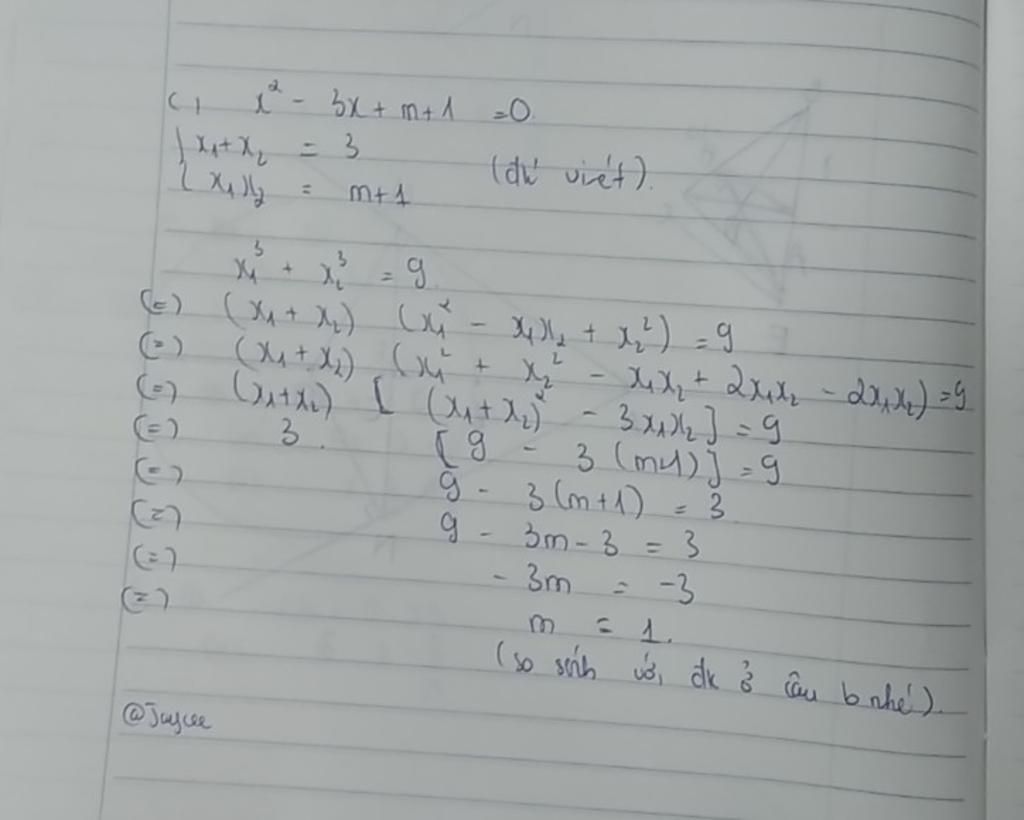 c, x² - 3x + m+1 = 0
{ x₁+x₂ = 3
{ x₁x₂ = m+1 (đk viét).
x₁³ + x₂³ = 9
(=) (x₁ + x₂) (x₁² - x₁x₂ + x₂²) = 9
(=) (x₁ + x₂) (x₁² + x₂² - x₁x₂ + 2x₁x₂ - 2x₁x₂) = 9
(=) (x₁+x₂) [ (x₁+x₂)² - 3x₁x₂] = 9
(=) 3. [9 - 3(m+1)] = 9
(=) 9 - 3(m+1) = 3
(=) 9 - 3m - 3 = 3
(=) - 3m = -3
(=) m = 1.
(so sánh với đk ở câu b nhé).
@Jaycee